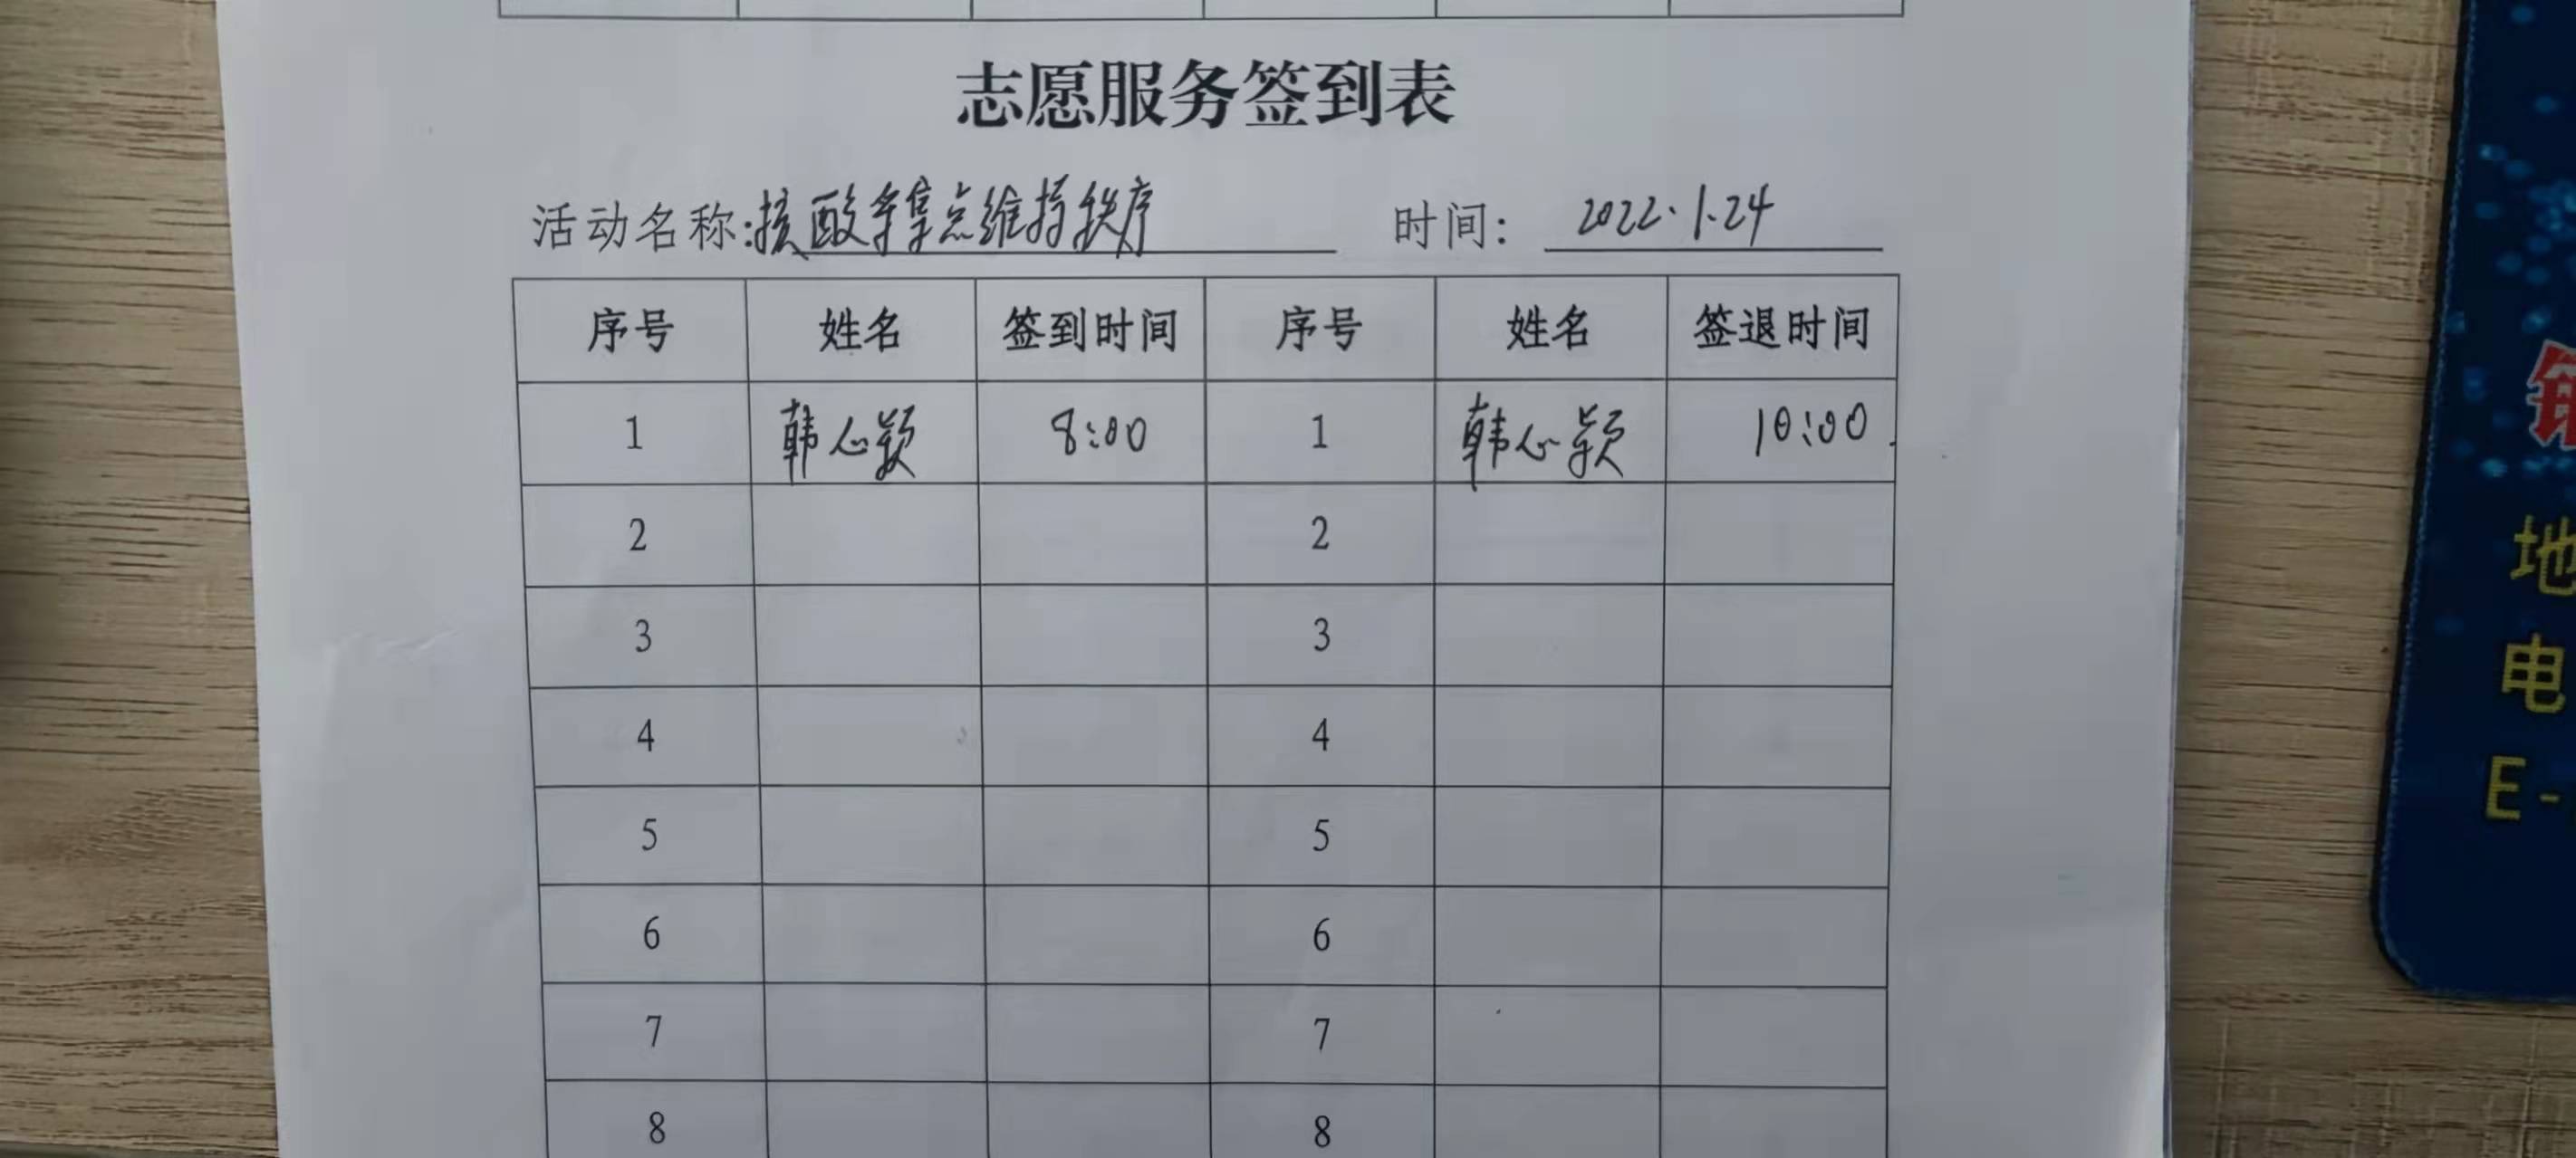 志愿服务签到表
活动名称:核酸采集点维持秩序 时间: 2022.1.24
序号 姓名 签到时间 序号 姓名 签退时间
1 韩心颖 8:00 1 韩心颖 10:00
2 2
3 3
4 4
5 5
6 6
7 7
8 8
地
电
E-